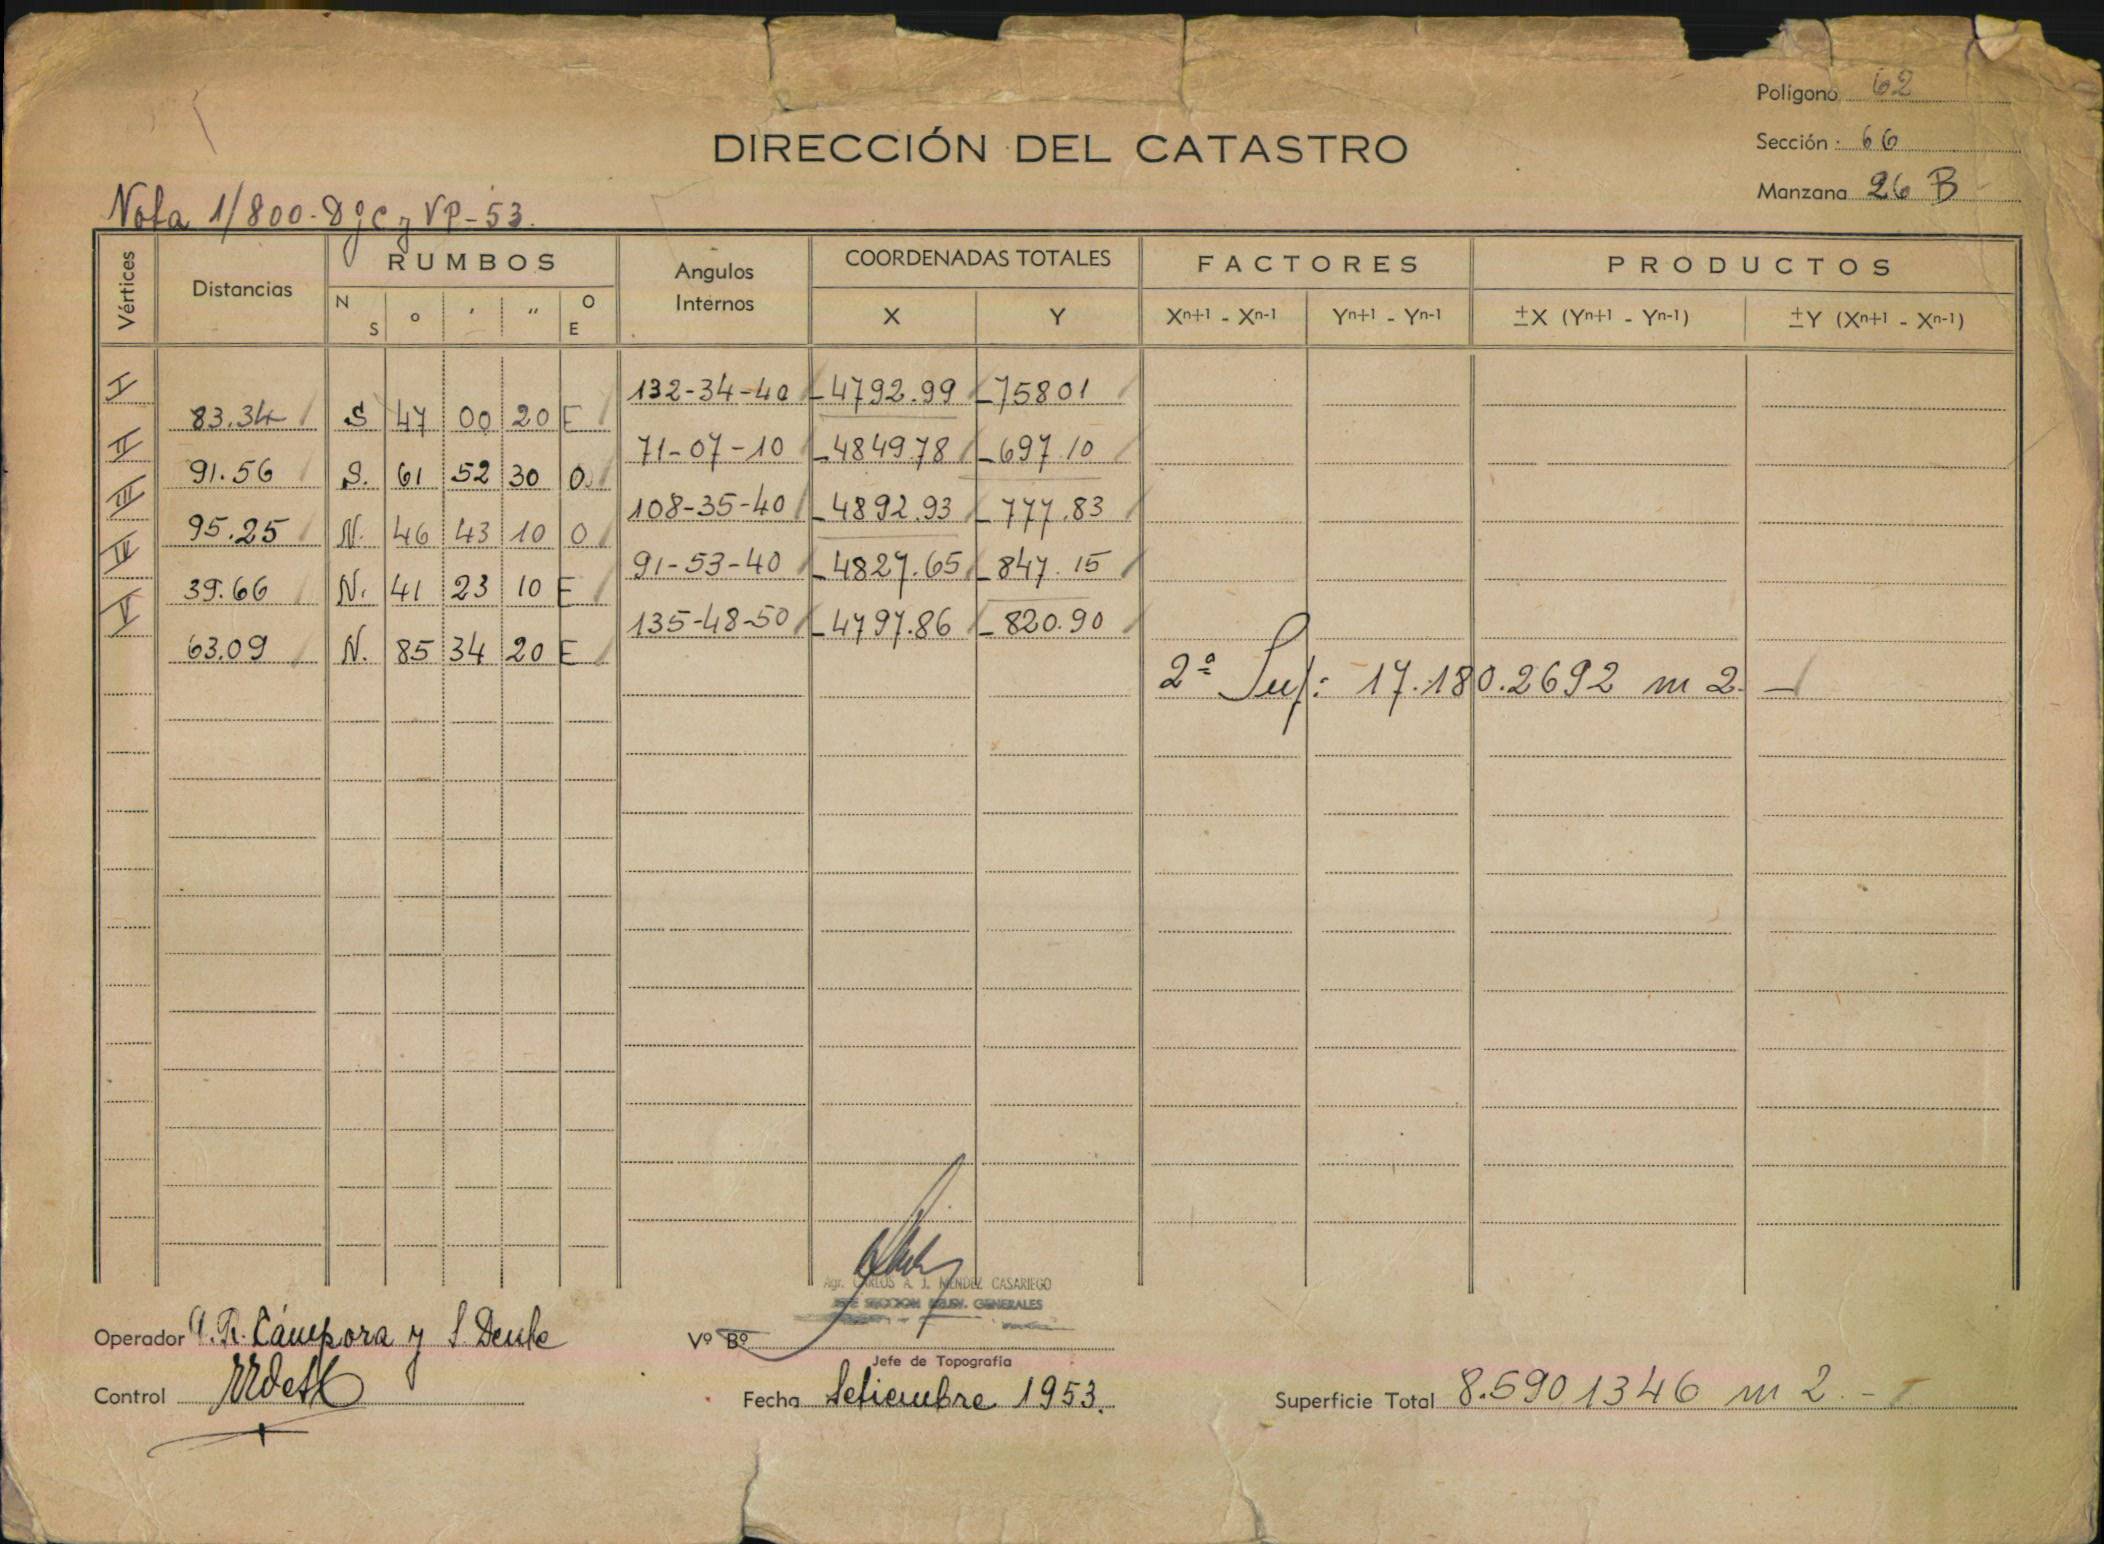 Polígono 62
DIRECCIÓN DEL CATASTRO
Sección 66
Manzana 26 B
Nota 1/800-DgC y VP-53.
Vértices Distancias RUMBOS Angulos Internos COORDENADAS TOTALES FACTORES PRODUCTOS
N S ° ' " O E X Y Xn+1 - Xn-1 Yn+1 - Yn-1 ±X (Yn+1 - Yn-1) ±Y (Xn+1 - Xn-1)
I 132-34-40 -4792.99 -75801
83.34 S 47 00 20 E
II 71-07-10 -484978 -697.10
91.56 S. 61 52 30 O.
III 108-35-40 -4892.93 -777.83
95.25 N. 46 43 10 O
IV 91-53-40 -4827.65 -847.15
39.66 N. 41 23 10 E
V 135-48-50 -4797.86 -820.90
63.09 N. 85 34 20 E
2ª Sup: 17.180.2692 m 2. —
Agr. CARLOS A. J. MENDEZ CASARIEGO
JEFE SECCION GENERALES
Operador Cámpora y
Vº Bº
Jefe de Topografía
Control
Fecha Setiembre 1953.
Superficie Total 8.5901346 m 2. -